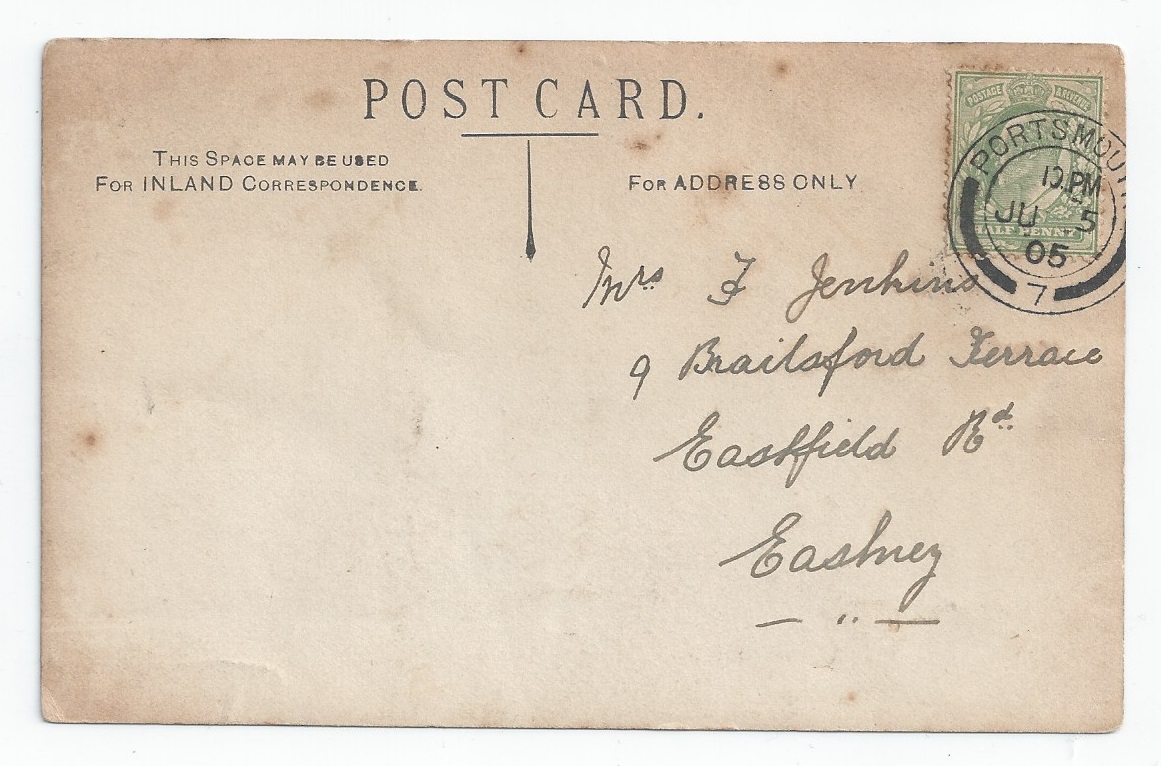 POST CARD.
THIS SPACE MAY BE USED
FOR INLAND CORRESPONDENCE.
FOR ADDRESS ONLY
POSTAGE & REVENUE
HALF PENNY
PORTSMOUTH
JU 5
05
7
Mrs F Jenkins
9 Brailsford Terrace
Eastfield Rd
Eastney